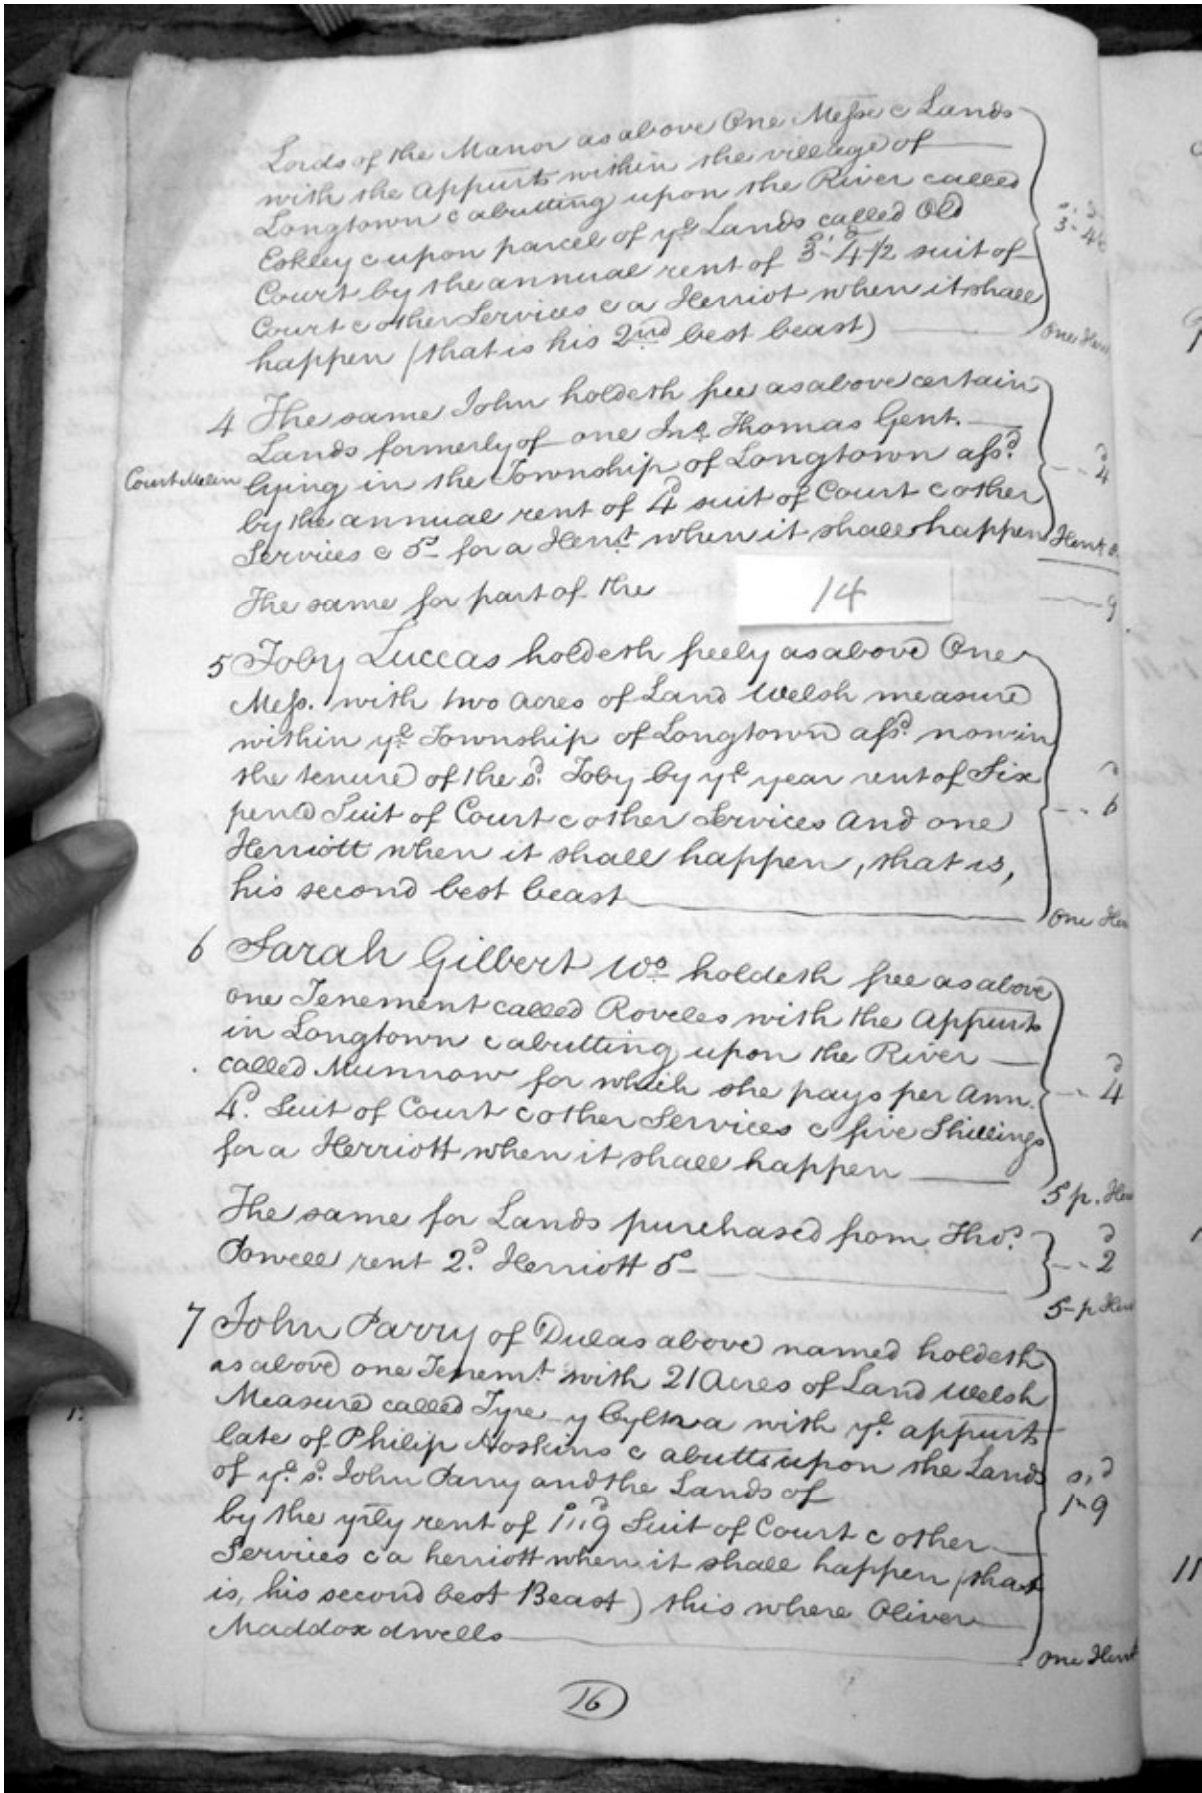 Lords of the Manor as above One Messe & Lands
with the Appurts within the village of
Longtown & abutting upon the River called
Eskley & upon parcel of ye Lands called Old
Court by the annual rent of 3s-4d½ suit of
Court & other Services & a Herriot when it shall
happen (that is his 2nd best beast)
3-4½
One Herr
4 The same John holdeth free as above certain
Lands formerly of one Jno. Thomas Gent.
Court Melin
lying in the Township of Longtown afsd.
by the annual rent of 4d suit of Court & other
Services & 5s- for a Herrt. when it shall happen
d
4
Herrt
The same for part of the
14
9
5 Toby Luccas holdeth freely as above One
Mess. with two Acres of Land Welsh measure
within ye Township of Longtown afsd. now in
the tenure of the sd. Toby by ye year rent of Six
pence Suit of Court & other Services And one
Herriott when it shall happen, that is,
his second best beast
d
6
One Herr
6 Sarah Gilbert Wo. holdeth free as above
one Tenement called Roveles with the Appurts
in Longtown & abutting upon the River
called Munnow for which she pays per Ann.
4d. Suit of Court & other Services & five Shillings
for a Herriott when it shall happen
d
4
5 p. Herr
The same for Lands purchased from Thos.
Powell rent 2d. Herriott 5-
d
2
5- p Herr
7 John Parry of Dulas above named holdeth
as above one Tenemt. with 21 Acres of Land Welsh
Measure called Tyre y with ye. appurts
late of Philip Hoskins & abutts upon the Lands
of ye. sd. John Parry and the Lands of
by the yrly rent of 1s,,9d Suit of Court & other
Services & a herriott when it shall happen (that
is, his second best Beast) this where Oliver
Maddox dwells
s, d
1-9
One Herrt
16